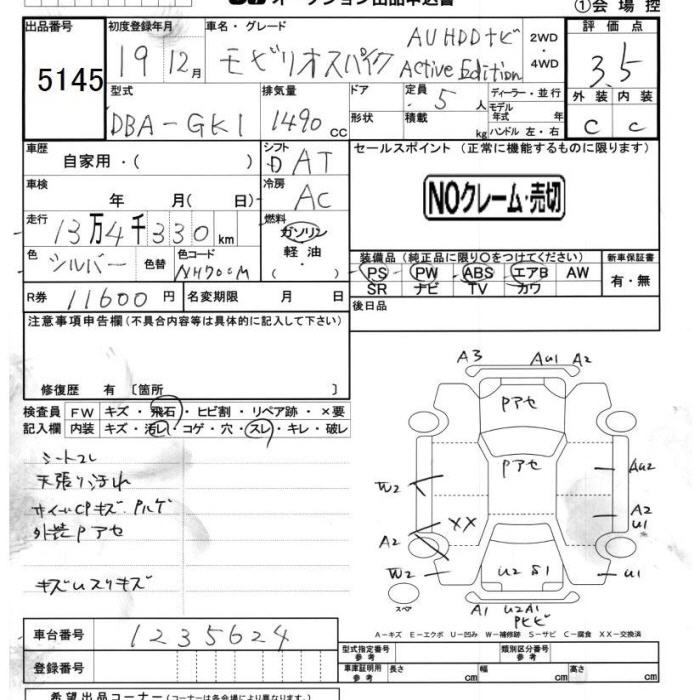 オークション出品申込書
①会場控
出品番号
5145
初度登録年月
19 12月
車名・グレード
モビリオスパイク AU HDDナビ Active Edition
2WD・4WD
評価点
3.5
外装 内装
C C
型式
DBA-GK1
排気量
1490 CC
ドア
形状
定員 5 人
積載 kg
ディーラー・並行
モデル年式 年
ハンドル 左・右
車歴
自家用・( )
シフト
D AT
車検
年 月(日)
冷房
AC
セールスポイント (正常に機能するものに限ります)
NOクレーム・売切
走行
13万4千330km
燃料
ガソリン
軽油
・( )
色
シルバー
色替
色コード
NH700M
装備品 (純正品に限り○をつけてください)
PS PW ABS エアB AW
SR ナビ TV カワ
新車保証書
有・無
R券 11600円
名変期限 月 日
後日品
注意事項申告欄(不具合内容等は具体的に記入して下さい)
修復歴 有 〔箇所 〕
検査員 FW キズ・飛石・ヒビ割・リペア跡・×要
記入欄 内装 キズ・汚れ・コゲ・穴・スレ・キレ・破レ
シートスレ
天張り汚れ
サイドCPキズ Pハゲ
外装Pアセ
キズUスリキズ
A3 AU1 A2
Pアセ
Pアセ
W2
AU2
XX
A2
U1
A2
W2
U2 S1
U1
スペア
A1 U2A1
Pヒビ
A-キズ E-エクボ U-凹み W-補修跡 S-サビ C-腐食 XX-交換済
車台番号 1235624
登録番号
型式指定番号 参考
類別区分番号 参考
車庫証明用 参考 長さ cm 幅 cm 高さ cm
希望出品コーナー(コーナーは各会場により異なります。)